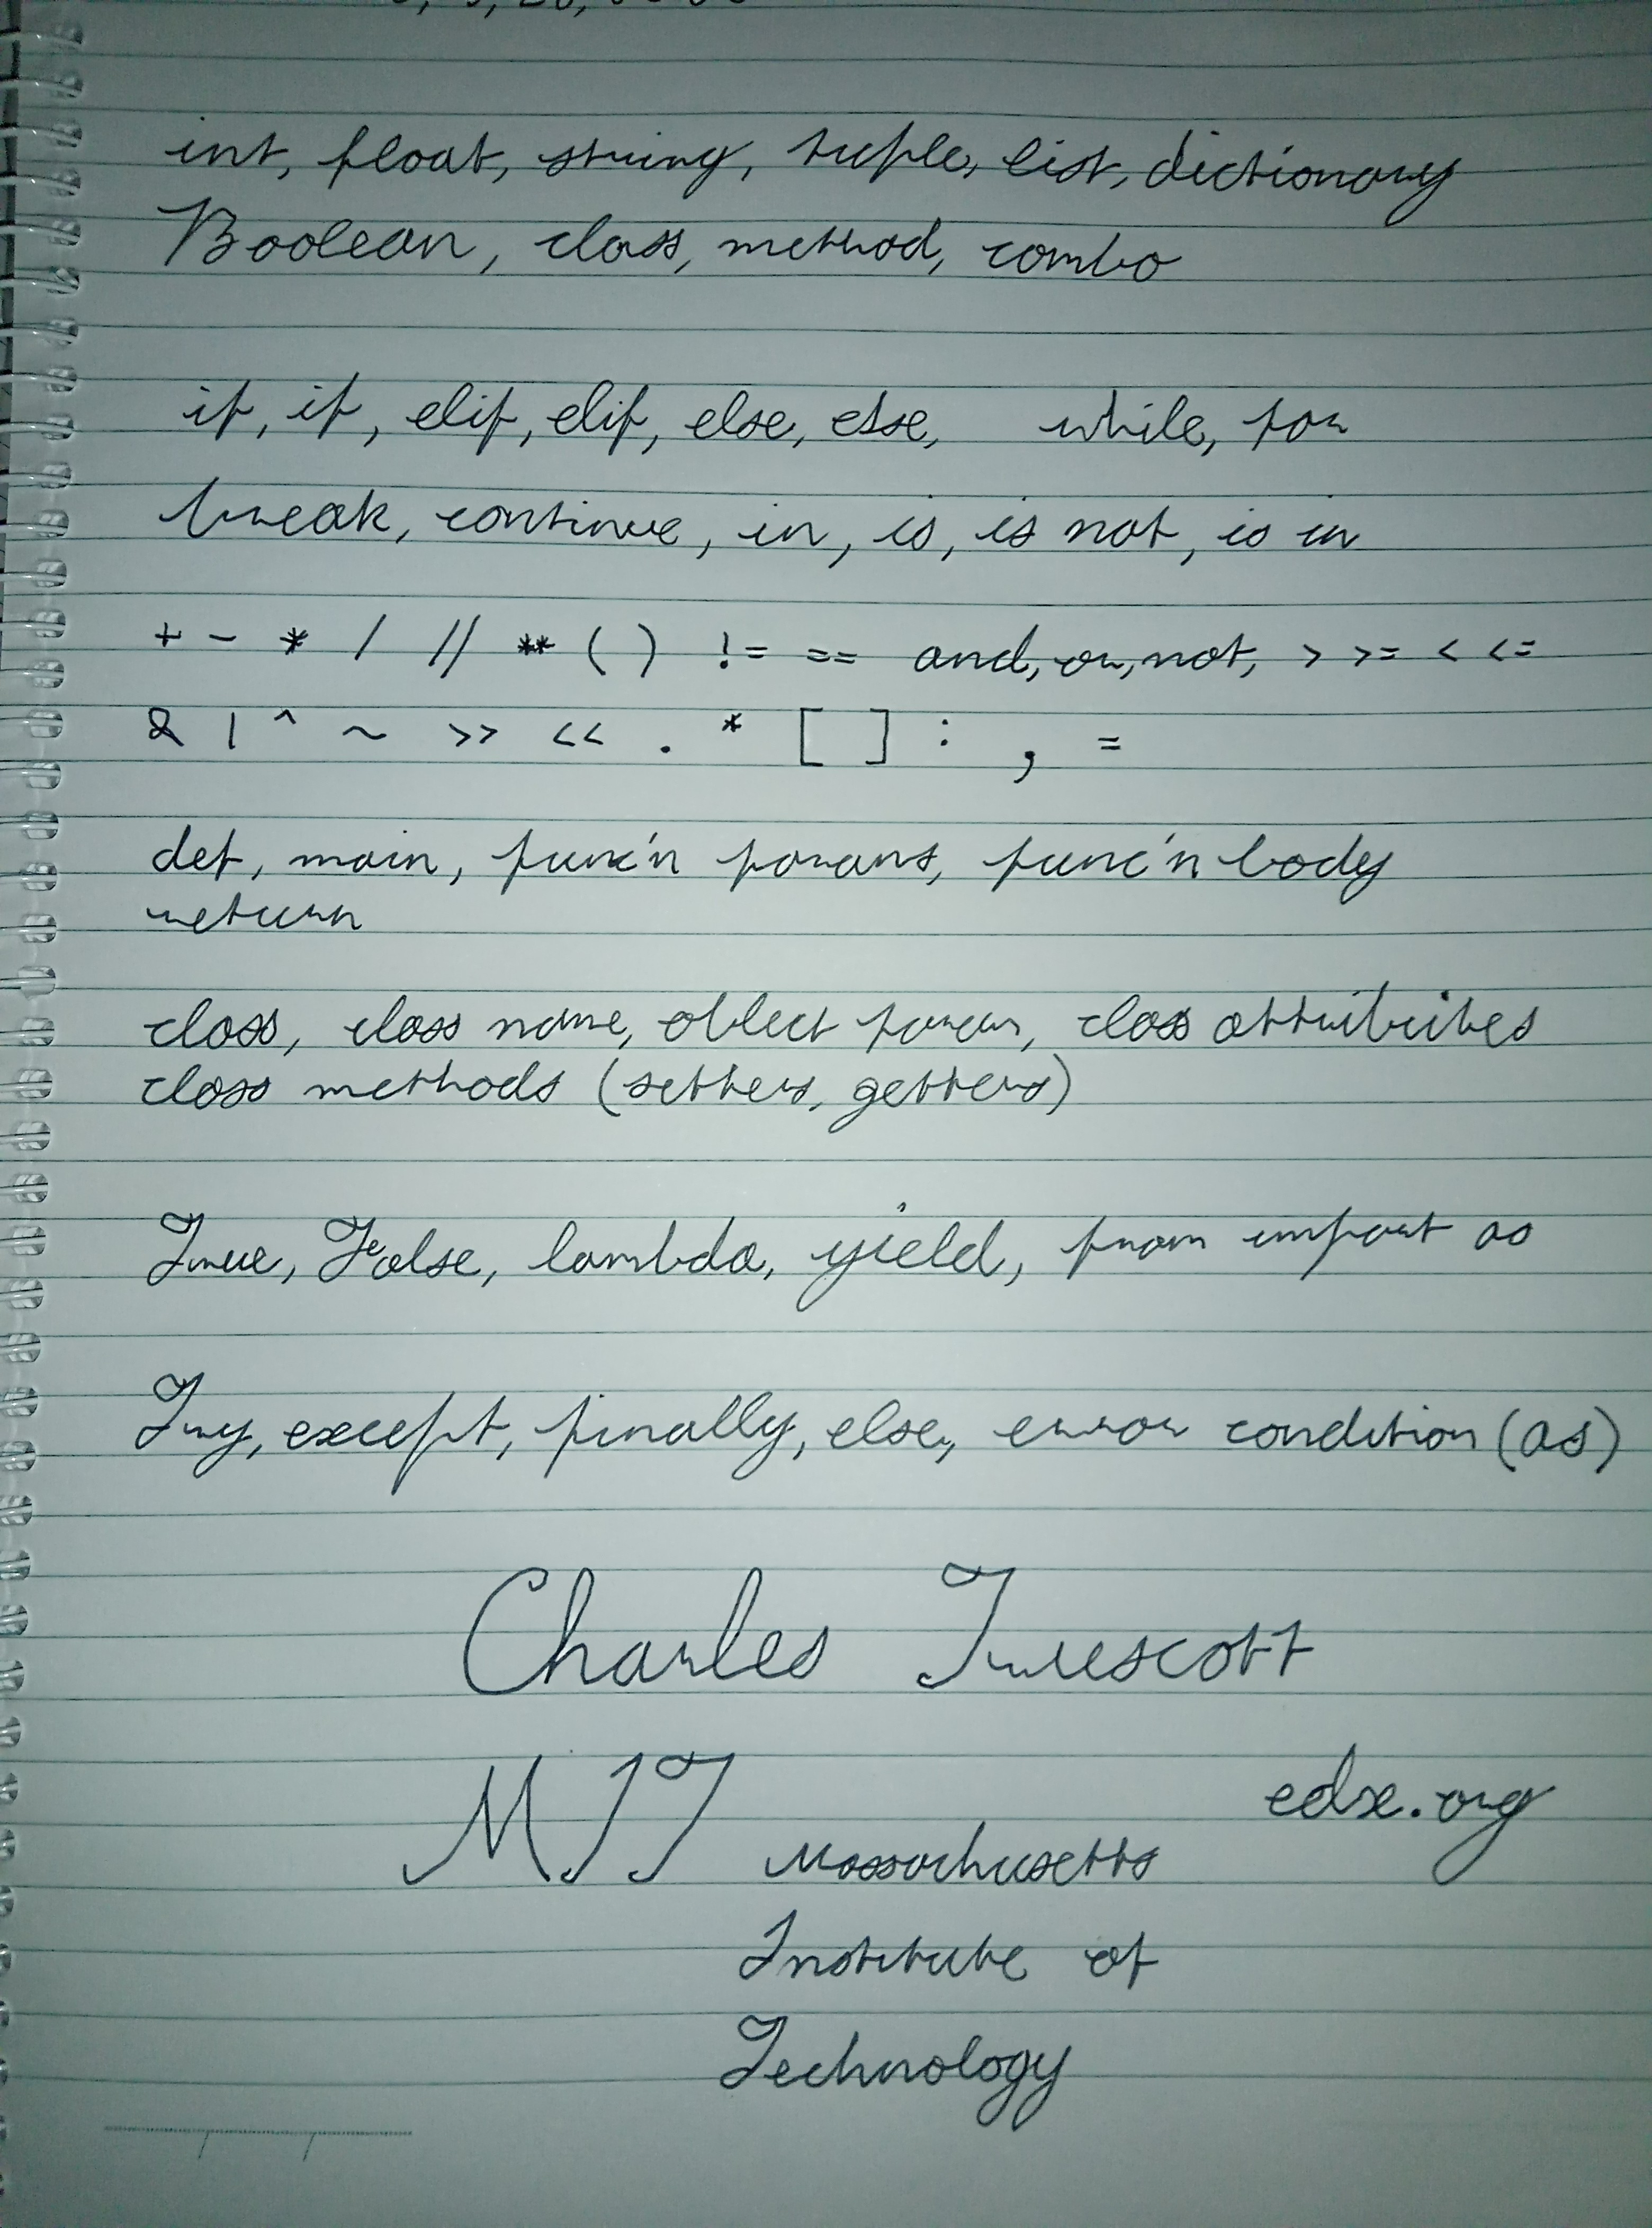 int, float, string, tuple, list, dictionary
Boolean, class, method, combo
if, if, elif, elif, else, else, while, for
break, continue, in, is, is not, is in
+ - * / // ** ( ) != == and, or, not, > >= < <=
& | ^ ~ >> << . * [ ] : , =
def, main, func'n params, func'n body
return
class, class name, object param, class attributes
class methods (setters, getters)
True, False, lambda, yield, from import as
Try, except, finally, else, error condition (as)
Charles Truscott
MIT edx.org
Massachusetts
Institute of
Technology